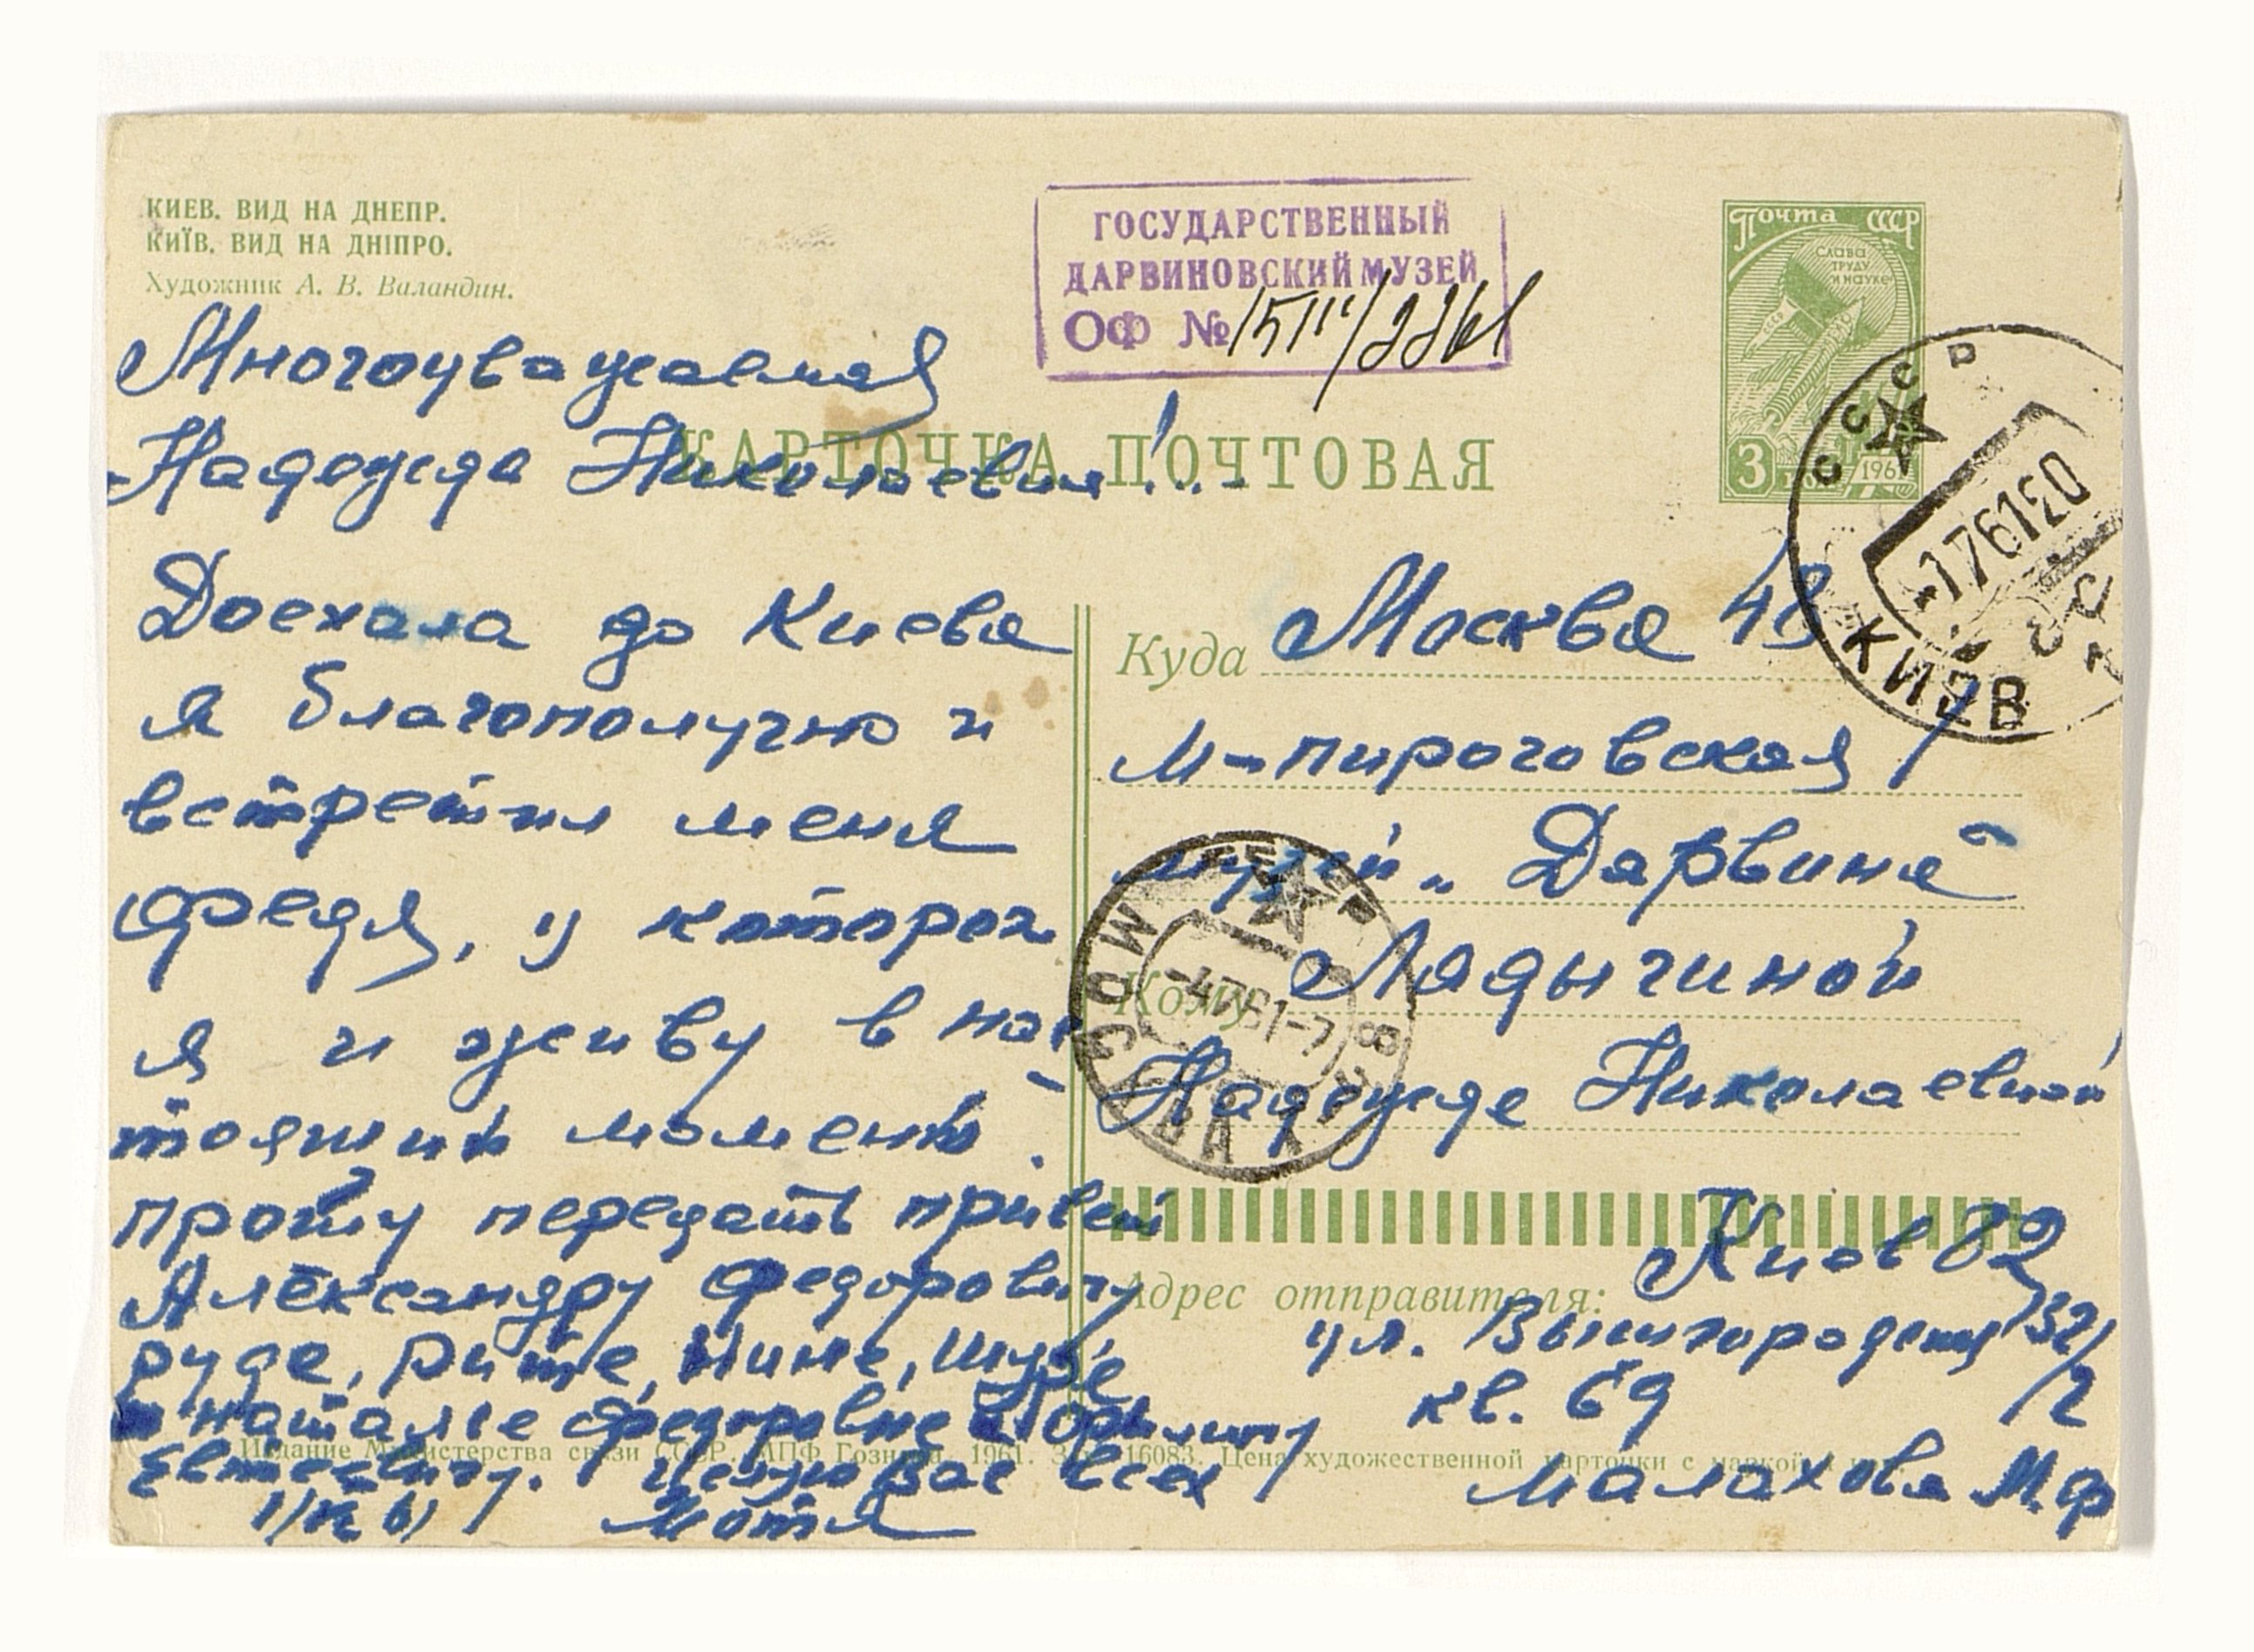 КИЕВ. ВИД НА ДНЕПР.
КИЇВ. ВИД НА ДНІПРО.
Художник А. В. Валандин.
ГОСУДАРСТВЕННЫЙ
ДАРВИНОВСКИЙ МУЗЕЙ
ОФ №
Почта СССР
СЛАВА
ТРУДУ
И НАУКЕ
3 КОП 1961
СССР
КИЕВ
КАРТОЧКА ПОЧТОВАЯ
Многоуважаемая
Надежда Николаевна!...
Доехала до Киева
я благополучно и
встретил меня
Федя, у которог
я и живу в нас-
тоящий момент.
прошу передать привет
Александру Федоровичу
Руде, Рите, Нине, Шуре
и Наталье Федоровне
Евтеевичу. Целую Вас всех
Мотя
Куда Москва 48
М-Пироговская 1
музей „Дарвина“
Кому Ладыгиной
Надежде Николаевной
МОСКВА
Адрес отправителя: Киев 82
ул. Вышгородская 32/2
кв. 69
Малахова М.Ф
Издание Министерства связи СССР. МПФ Гознака. 1961. 16083. Цена художественной карточки с маркой 4 коп.